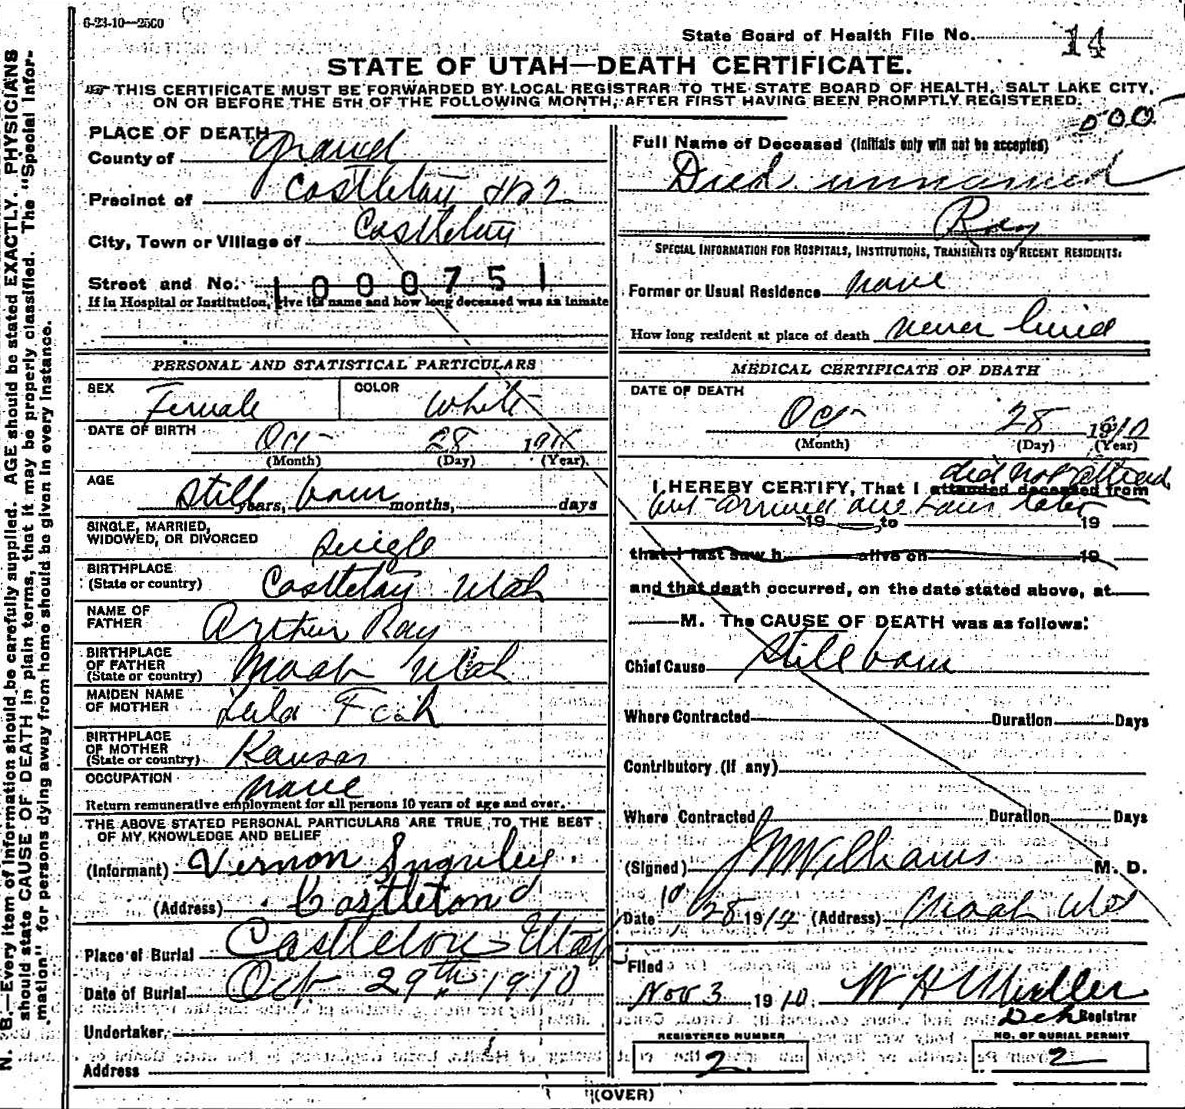 6-23-10—2500
State Board of Health File No. 14
STATE OF UTAH—DEATH CERTIFICATE.
THIS CERTIFICATE MUST BE FORWARDED BY LOCAL REGISTRAR TO THE STATE BOARD OF HEALTH, SALT LAKE CITY,
ON OR BEFORE THE 5TH OF THE FOLLOWING MONTH, AFTER FIRST HAVING BEEN PROMPTLY REGISTERED.
N. B.—Every item of information should be carefully supplied. AGE should be stated EXACTLY. PHYSICIANS
should state CAUSE OF DEATH in plain terms, that it may be properly classified. The "Special Infor-
mation" for persons dying away from home should be given in every instance.
PLACE OF DEATH
County of Grand
Precinct of Castleton
City, Town or Village of Castleton
Street and No.
1000751
If in Hospital or Institution, give its name and how long deceased was an inmate
PERSONAL AND STATISTICAL PARTICULARS
SEX Female COLOR White
DATE OF BIRTH Oct 28 1910
(Month) (Day) (Year)
AGE Still years, born months, days
SINGLE, MARRIED,
WIDOWED, OR DIVORCED Single
BIRTHPLACE
(State or country) Castleton Utah
NAME OF
FATHER Arthur Ray
BIRTHPLACE
OF FATHER
(State or country) Moab Utah
MAIDEN NAME
OF MOTHER Lula
BIRTHPLACE
OF MOTHER
(State or country) Kansas
OCCUPATION none
Return remunerative employment for all persons 10 years of age and over.
THE ABOVE STATED PERSONAL PARTICULARS ARE TRUE TO THE BEST
OF MY KNOWLEDGE AND BELIEF
(Informant) Vernon
(Address) Castleton
Place of Burial Castleton Utah
Date of Burial Oct 29th 1910
Undertaker
Address
Full Name of Deceased (Initials only will not be accepted)
Died unnamed
Ray
SPECIAL INFORMATION FOR HOSPITALS, INSTITUTIONS, TRANSIENTS OR RECENT RESIDENTS:
Former or Usual Residence none
How long resident at place of death never lived
MEDICAL CERTIFICATE OF DEATH
DATE OF DEATH
Oct 28 1910
(Month) (Day) (Year)
did not attend
I HEREBY CERTIFY, That I attended deceased from
but arrived one hour later
19 to 19
that I last saw h alive on 19
and that death occurred, on the date stated above, at
M. The CAUSE OF DEATH was as follows:
Chief Cause Still born
Where Contracted Duration Days
Contributory (if any)
Where Contracted Duration Days
(Signed) J W Williams M. D.
Date 10/28 1910 (Address) Moab
Filed
Nov 3 1910. W H
Registrar
REGISTERED NUMBER
2
NO. OF BURIAL PERMIT
2
(OVER)